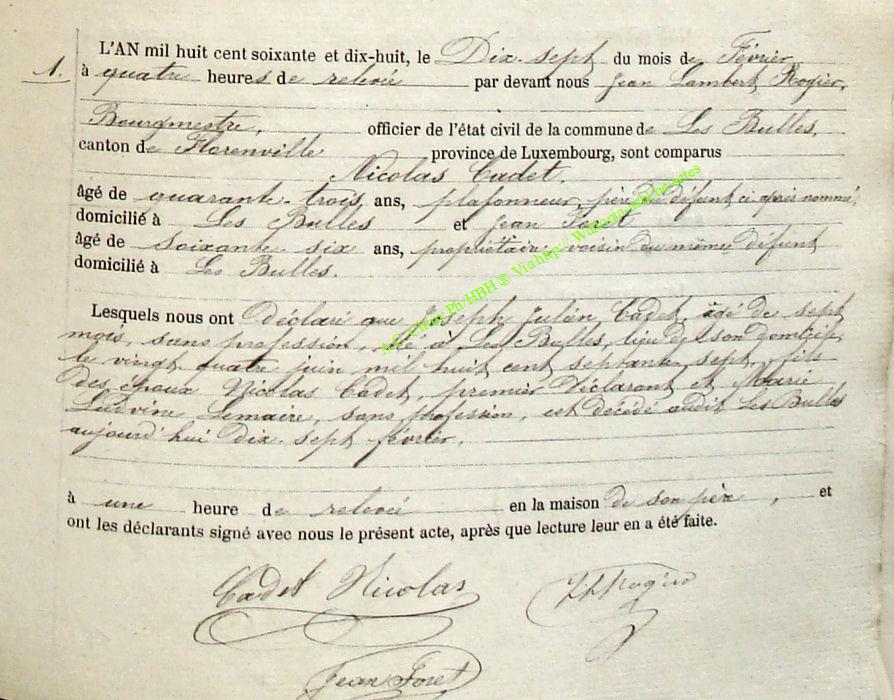 L'AN mil huit cent soixante et dix-huit, le Dix-sept du mois de Février
1.
à quatre heures de relevée par devant nous Jean Lambert Rogier,
Bourgmestre, officier de l'état civil de la commune de Les Bulles,
canton de Florenville province de Luxembourg, sont comparus
Nicolas Cadet,
âgé de quarante-trois ans, plafonneur, père du défunt ci après nommé,
domicilié à Les Bulles et Jean Foret
âgé de soixante-six ans, propriétaire, voisin du même défunt
domicilié à Les Bulles.
Lesquels nous ont déclaré que Joseph Julien Cadet, âgé de sept
mois, sans profession, né à Les Bulles, lieu de son domicile,
le vingt quatre juin mil huit cent septante sept, fils
des époux Nicolas Cadet, premier déclarant et Marie
Ludvine Lemaire, sans profession, est décédé audit Les Bulles
aujourd'hui Dix-sept février,
à une heure de relevée en la maison de son père, et
ont les déclarants signé avec nous le présent acte, après que lecture leur en a été faite.
Cadet Nicolas JLRogier
Jean Foret